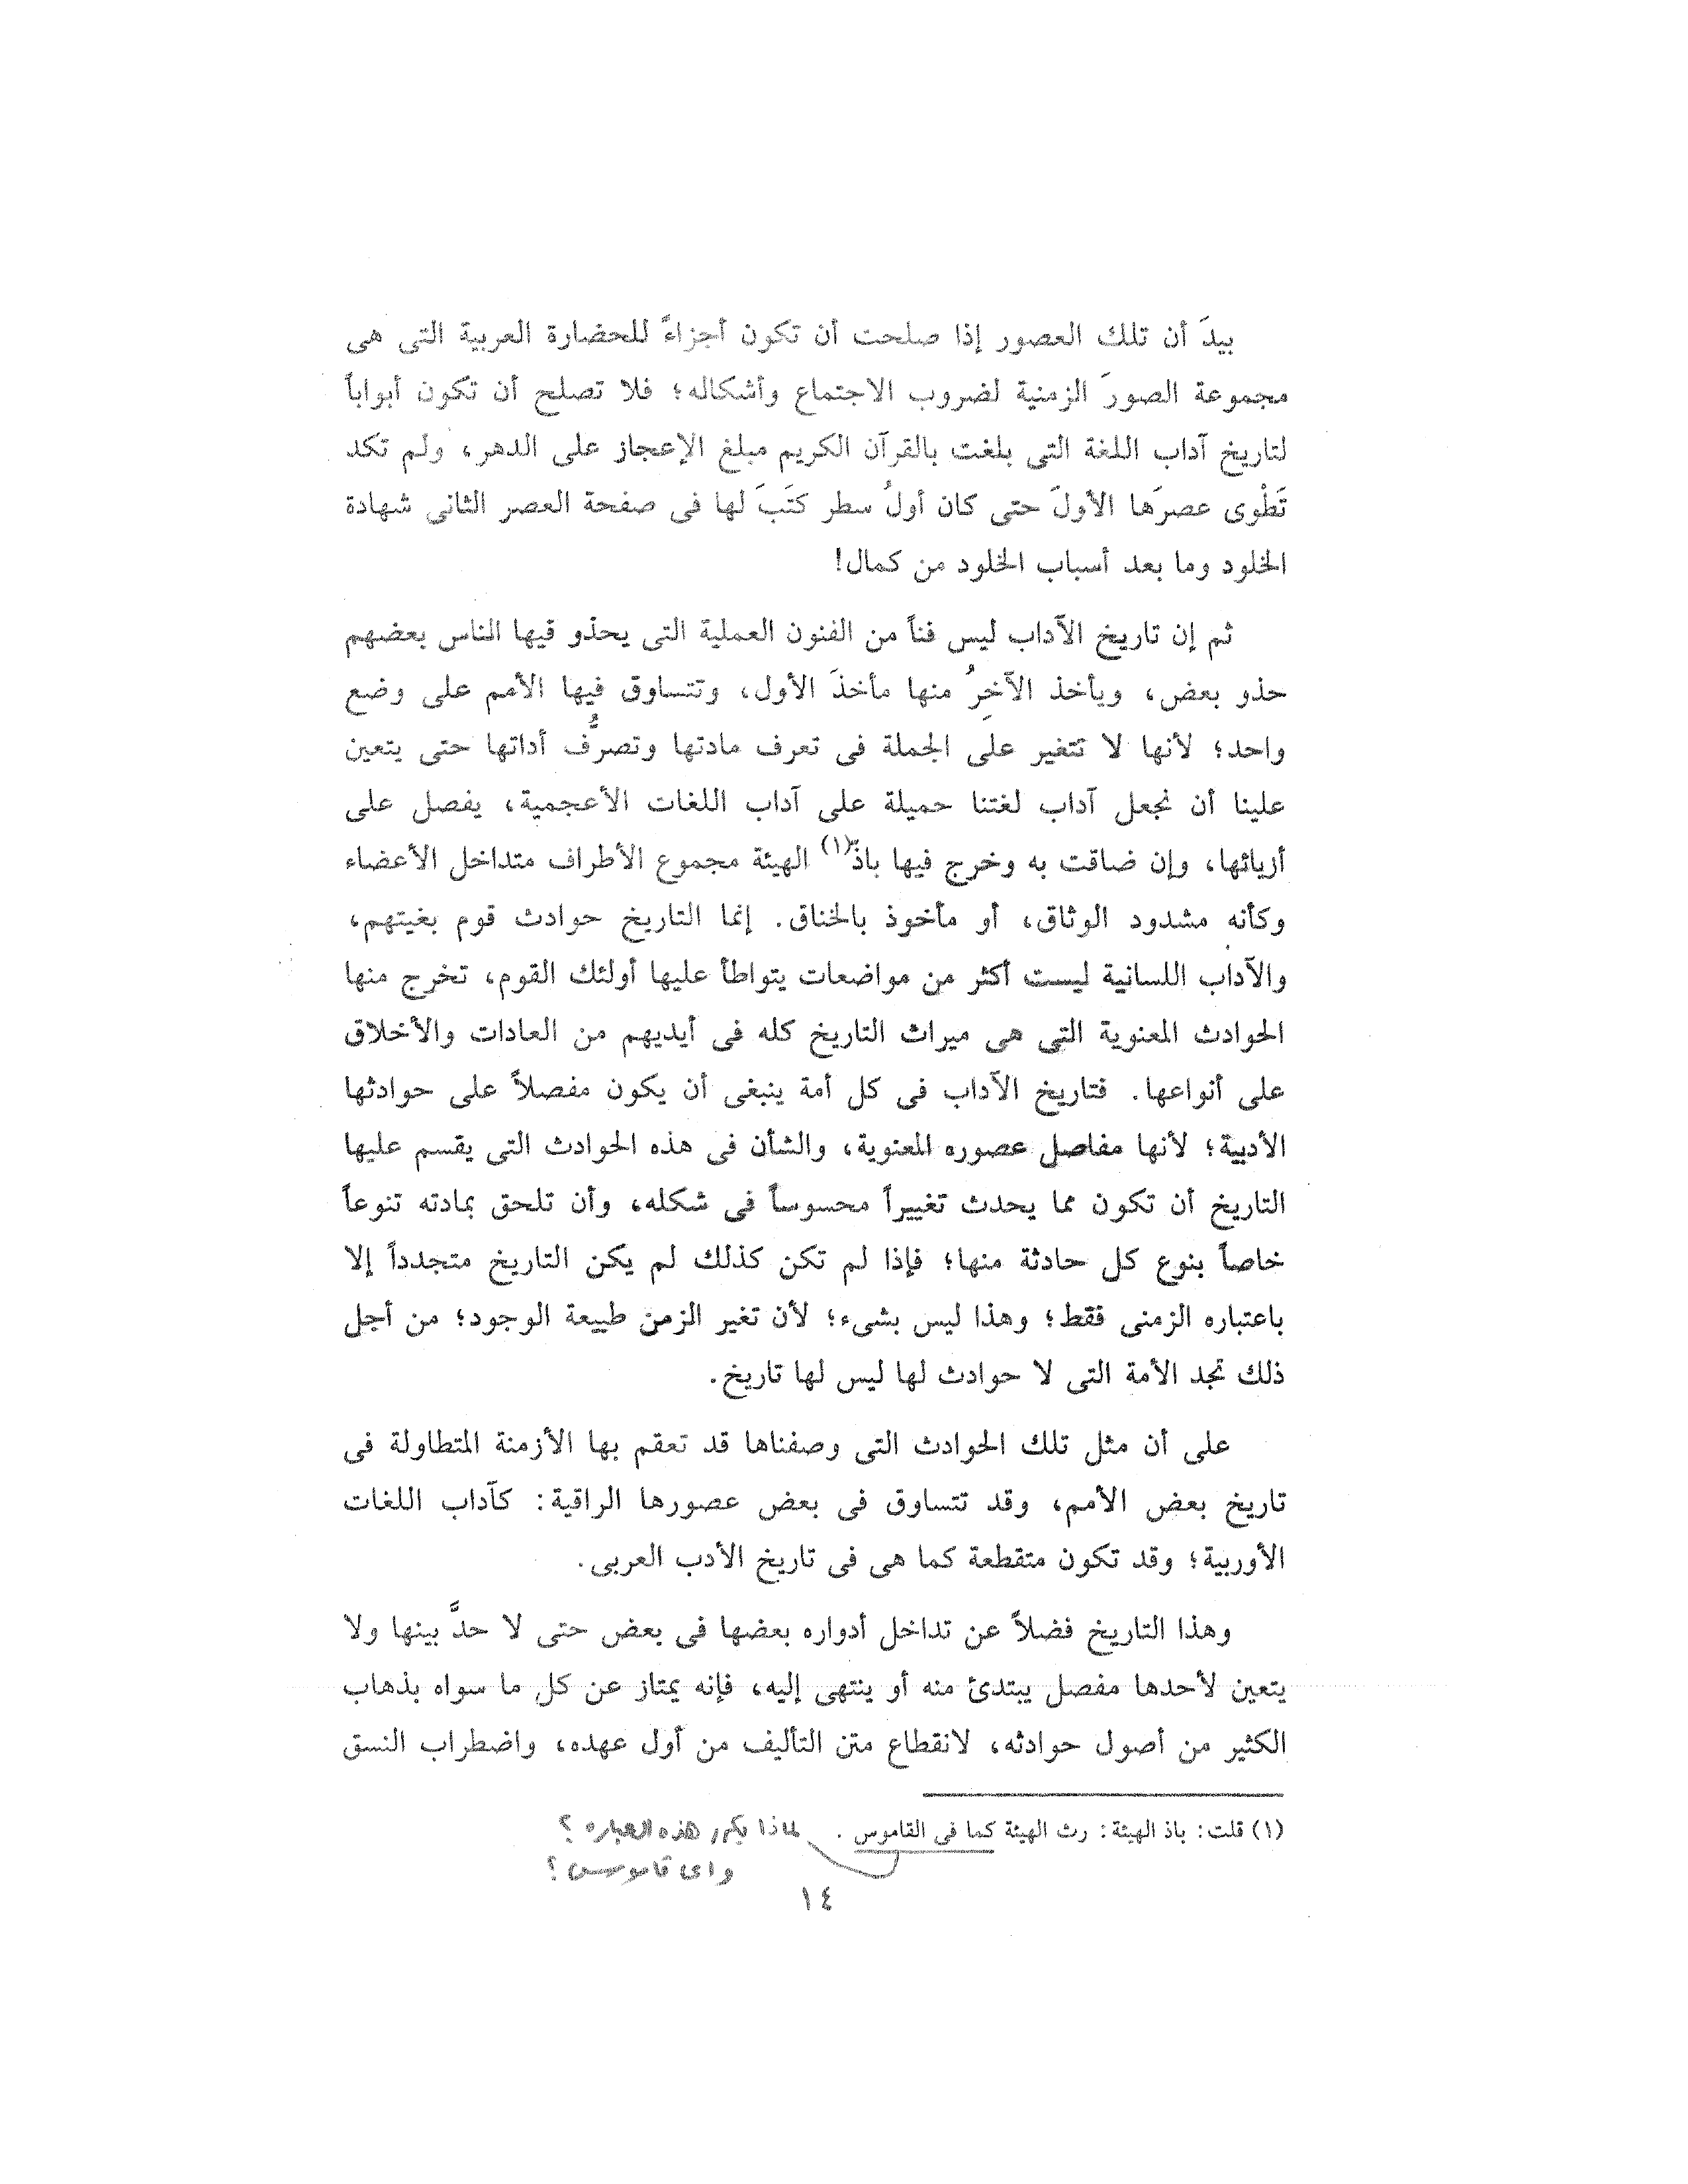 بيدَ أن تلك العصور إذا صلحت أن تكون أجزاءً للحضارة العربية التى هى
مجموعة الصورَ الزمنية لضروب الاجتماع وأشكاله؛ فلا تصلح أن تكون أبواباً
لتاريخ آداب اللغة التى بلغت بالقرآن الكريم مبلغ الإعجاز على الدهر، ولم تكد
تَطْوى عصرَها الأولَ حتى كان أولُ سطر كتَبَ لها فى صفحة العصر الثانى شهادة
الخلود وما بعد أسباب الخلود من كمال!
ثم إن تاريخ الآداب ليس فناً من الفنون العملية التى يحذو قيها الناس بعضهم
حذو بعض، ويأخذ الآخِرُ منها مأخذَ الأول، وتتساوق فيها الأمم على وضع
واحد؛ لأنها لا تتغير على الجملة فى تعرف مادتها وتصرُّف أداتها حتى يتعين
علينا أن نجعل آداب لغتنا حميلة على آداب اللغات الأعجمية، يفصل على
أزيائها، وإن ضاقت به وخرج فيها باذّ(١) الهيئة مجموع الأطراف متداخل الأعضاء
وكأنه مشدود الوثاق، أو مأخوذ بالخناق. إنما التاريخ حوادث قوم بغيتهم،
والآداب اللسانية ليست أكثر من مواضعات يتواطأ عليها أولئك القوم، تخرج منها
الحوادث المعنوية التى هى ميراث التاريخ كله فى أيديهم من العادات والأخلاق
على أنواعها. فتاريخ الآداب فى كل أمة ينبغى أن يكون مفصلاً على حوادثها
الأدبية؛ لأنها مفاصل عصوره المعنوية، والشأن فى هذه الحوادث التى يقسم عليها
التاريخ أن تكون مما يحدث تغييراً محسوساً فى شكله، وأن تلحق بمادته تنوعاً
خاصاً بنوع كل حادثة منها؛ فإذا لم تكن كذلك لم يكن التاريخ متجدداً إلا
باعتباره الزمنى فقط؛ وهذا ليس بشىء؛ لأن تغير الزمن طبيعة الوجود؛ من أجل
ذلك تجد الأمة التى لا حوادث لها ليس لها تاريخ.
على أن مثل تلك الحوادث التى وصفناها قد تعقم بها الأزمنة المتطاولة فى
تاريخ بعض الأمم، وقد تتساوق فى بعض عصورها الراقية: كآداب اللغات
الأوربية؛ وقد تكون متقطعة كما هى فى تاريخ الأدب العربى.
وهذا التاريخ فضلاً عن تداخل أدواره بعضها فى بعض حتى لا حدَّ بينها ولا
يتعين لأحدها مفصل يبتدئ منه أو ينتهى إليه، فإنه يمتاز عن كل ما سواه بذهاب
الكثير من أصول حوادثه، لانقطاع متن التأليف من أول عهده، واضطراب النسق
(١) قلت: باذ الهيئة: رث الهيئة كما فى القاموس .
لماذا يكرر هذه العباره ؟
واى قاموس ؟
١٤